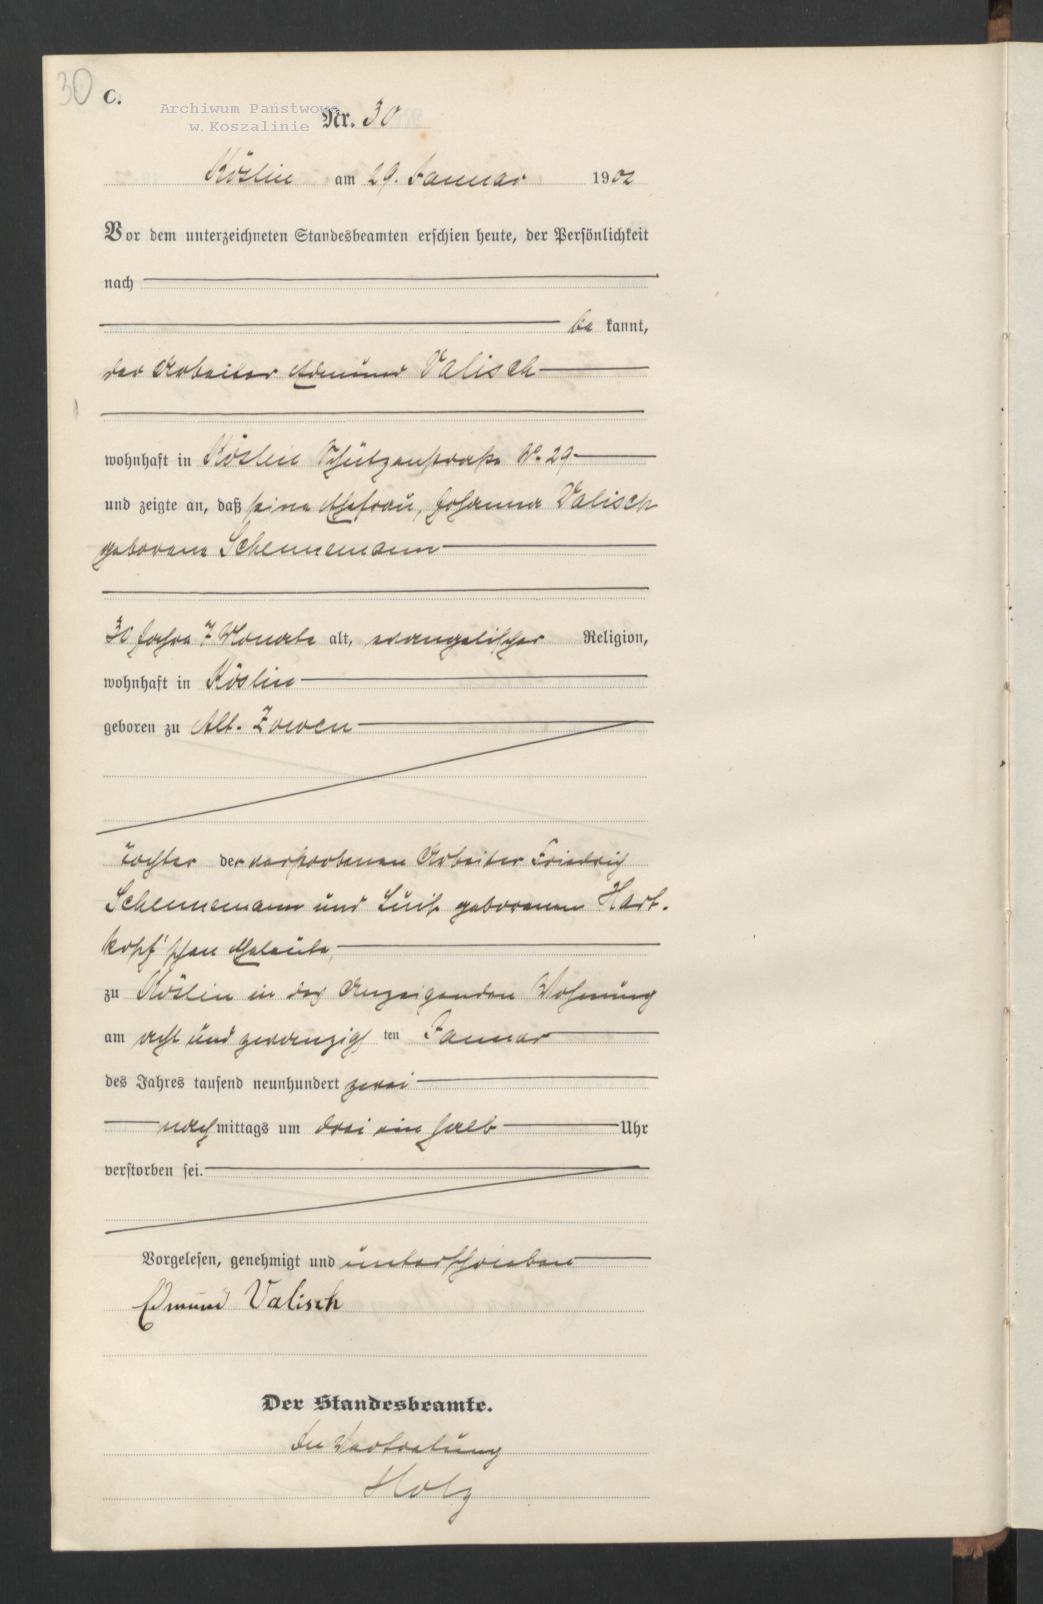 30
C.
Archiwum Państwowe
w Koszalinie
Nr. 30
Köslin am 29. Januar 1902
Vor dem unterzeichneten Standesbeamten erschien heute, der Persönlichkeit
nach
be kannt,
der Arbeiter Edmund Valisch
wohnhaft in Köslin Schützenstraße No. 29
und zeigte an, daß seine Ehefrau, Johanna Valisch
geborene Schennemann
30 Jahre 7 Monate alt, evangelischer Religion,
wohnhaft in Köslin
geboren zu Alt-Zowen
Tochter der verstorbenen Arbeiter Friedrich
Schennemann und Luise geborenen Hart-
kopf'schen Eheleute,
zu Köslin in des Anzeigenden Wohnung
am acht und zwanzigsten Januar
des Jahres tausend neunhundert zwei
nachmittags um drei ein halb Uhr
verstorben sei.
Vorgelesen, genehmigt und unterschrieben
Edmund Valisch
Der Standesbeamte.
In Vertretung
Holz